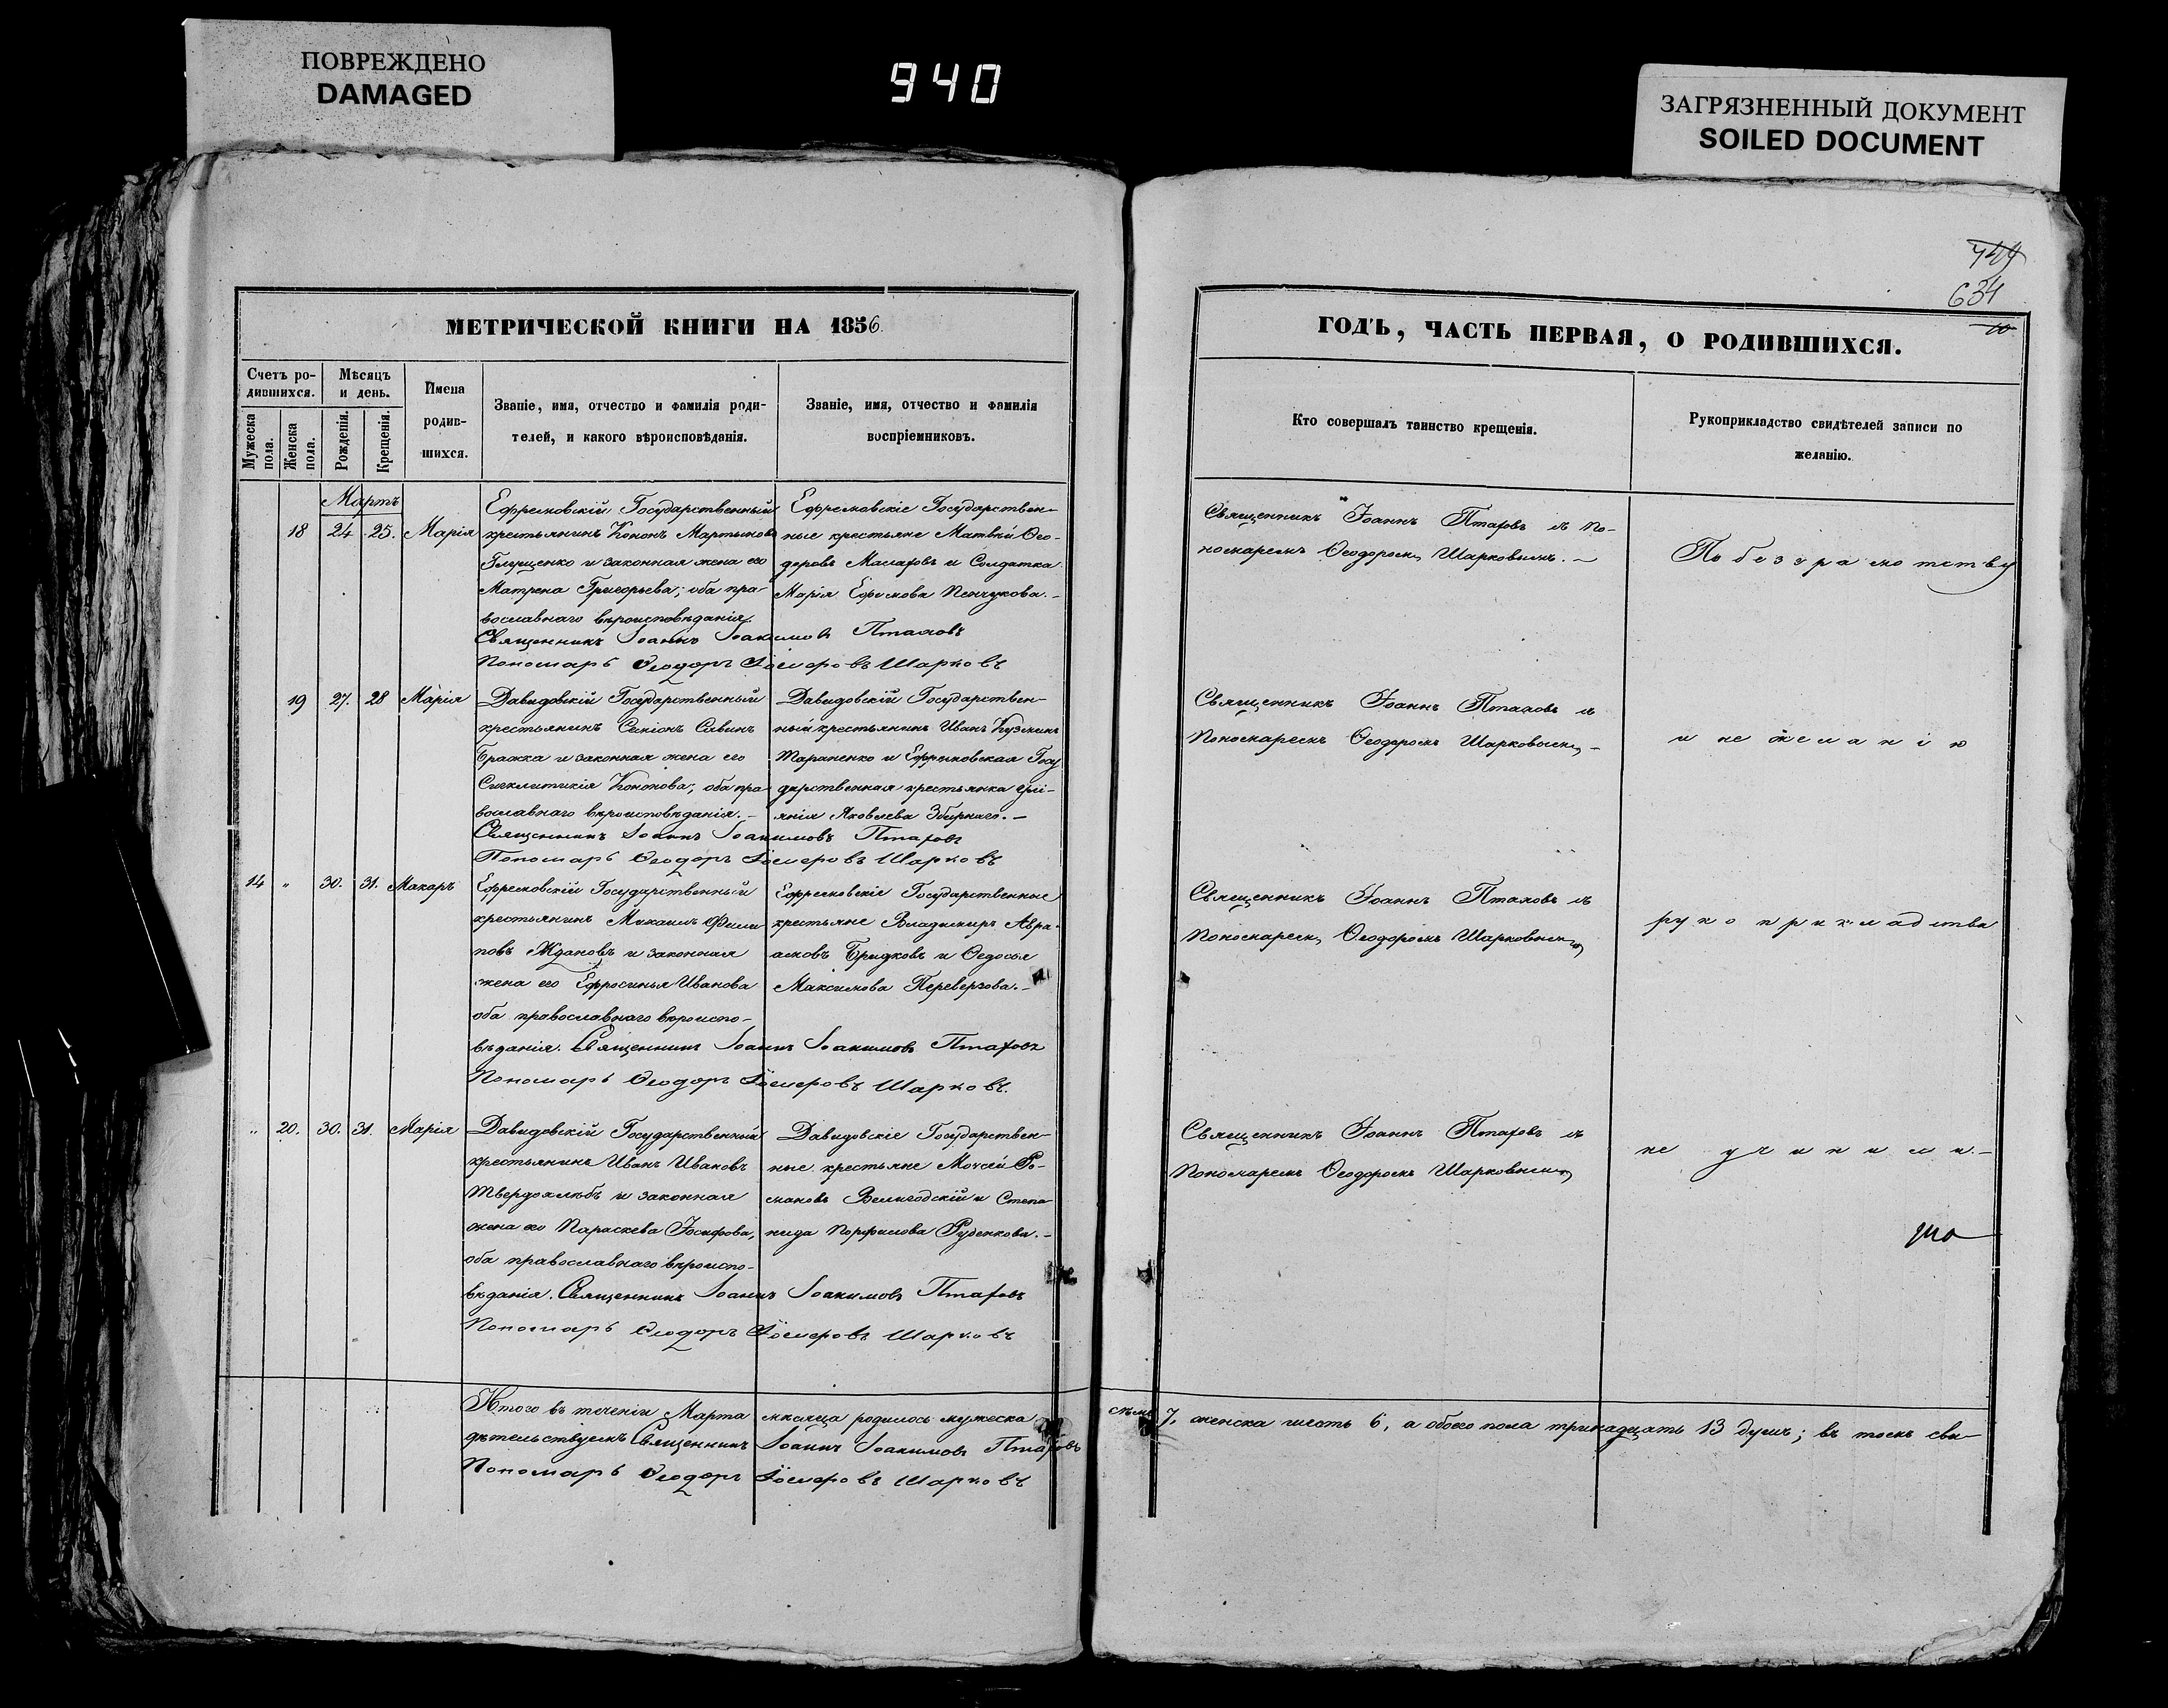 ПОВРЕЖДЕНО
DAMAGED
940
ЗАГРЯЗНЕННЫЙ ДОКУМЕНТ
SOILED DOCUMENT
634
МЕТРИЧЕСКОЙ КНИГИ НА 1856
Счетъ ро-
дившихся.
Мѣсяцъ
и день.
Имена
родив-
шихся.
Званіе, имя, отчество и фамилія роди-
телей, и какого вѣроисповѣданія.
Званіе, имя, отчество и фамилія
воспріемниковъ.
Мужеска
пола.
Женска
пола.
Рожденія.
Крещенія.
Мартъ
18 24 25. Марія
Ефремовскій Государственный
крестьянинъ Кононъ Мартыновъ
Глущенко и законная жена его
Матрена Григорьева; оба пра-
вославнаго вѣроисповѣданія.
Ефремовскіе Государствен-
ные крестьяне Матвѣй Ѳео-
доровъ Малаховъ и Солдатка
Марія Ефимова Пенчукова.-
Священникъ Іоаннъ Іоакимовъ Птаховъ
Пономарь Ѳеодоръ Шарковъ
19 27. 28 Марія
Давидовскій Государственный
крестьянинъ Семіонъ Савинъ
Бражка и законная жена его
Синклитикія Кононова; оба пра-
вославнаго вѣроисповѣданія.-
Давидовскій Государствен-
ный крестьянинъ Иванъ Кузминъ
Тараненко и Ефремовская Госу
дарственная крестьянка Улі-
янія Яковлева Збирнаго.-
Священникъ Іоаннъ Іоакимовъ Птаховъ
Пономарь Ѳеодоръ Шарковъ
14 " 30. 31. Макаръ
Ефремовскій Государственный
крестьянинъ Михаилъ Фили
повъ Ждановъ и законная
жена его Ефросинья Иванова
оба православнаго вѣроиспо-
вѣданія.
Ефремовскіе Государственные
крестьяне Владимиръ Авра-
амовъ Бридковъ и Ѳедосья
Максимова Переверзова.-
Священникъ Іоаннъ Іоакимовъ Птаховъ
Пономарь Ѳеодоръ Шарковъ.
" 20. 30. 31. Марія
Давидовскій Государственный
крестьянинъ Иванъ Ивановъ
Твердохлѣбъ и законная
жена его Параскева Іосифова,
оба православнаго вѣроиспо-
вѣданія.
Давидовскіе Государствен-
ные крестьяне Моѵсей Ро-
мановъ Велигодскій и Степа
нида Порфилова Руденкова.-
Священникъ Іоаннъ Іоакимовъ Птаховъ
Пономарь Ѳеодоръ Шарковъ
Итого въ теченіи Марта мѣсяца родилось мужеска
дѣтельствуемъ Священникъ Іоаннъ Іоакимовъ Птаховъ
Пономарь Ѳеодоръ Шарковъ
ГОДЪ, ЧАСТЬ ПЕРВАЯ, О РОДИВШИХСЯ.
Кто совершалъ таинство крещенія.
Рукоприкладство свидѣтелей записи по
желанію.
Священникъ Іоаннъ Птаховъ съ по-
номаремъ Ѳеодоромъ Шарковымъ.-
По безграмотству
Священникъ Іоаннъ Птаховъ съ
Пономаремъ Ѳеодоромъ Шарковымъ-
и не желанію
Священникъ Іоаннъ Птаховъ съ
Пономаремъ Ѳеодоромъ Шарковымъ
рукоприкладства
Священникъ Іоаннъ Птаховъ съ
Пономаремъ Ѳеодоромъ Шарковымъ
не учинили.-
семь 7. женска шесть 6, а обоего пола тринадцать 13 душъ; въ томъ сви-